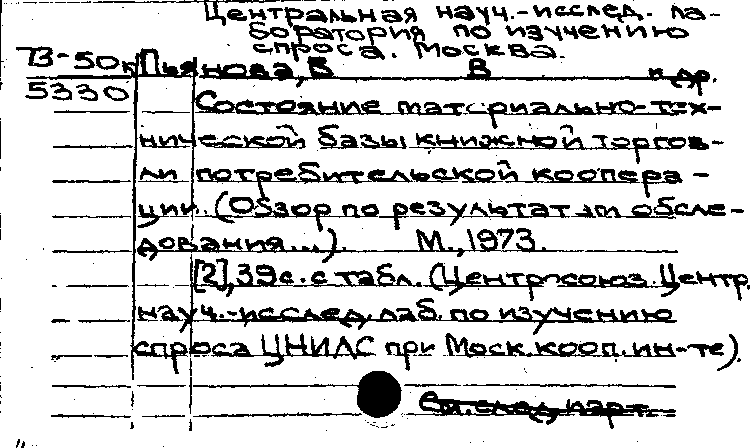 Центральная науч.-исслед. ла-
боратория по изучению
спроса. Москва.
Пьянова, В В и др.
5330
Состояние материально-тех-
нической базы книжной торгов-
ли потребительской коопера-
ции. (Обзор по результатам обсле-
дования...). М., 1973.
[2], 39с. с табл. (Центросоюз. Центр.
науч.-исслед. лаб. по изучению
спроса ЦНИЛС при Моск. кооп. ин-те).
См. след. карт.